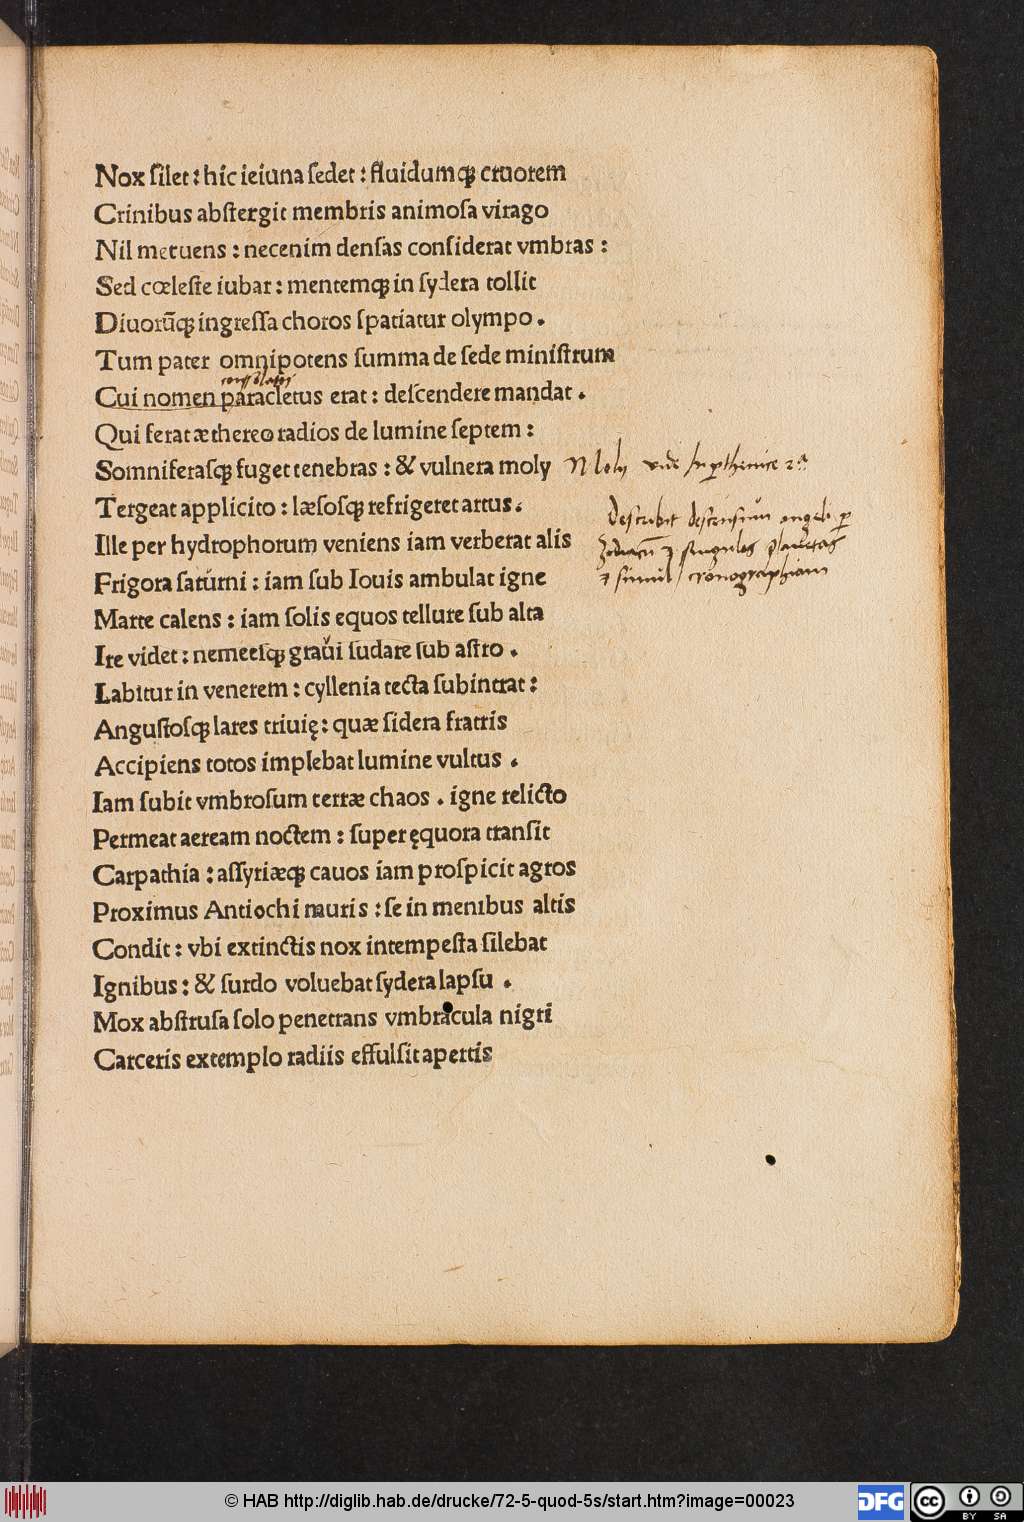 Nox silet : hic ieiuna sedet : fluidumqꝫ cruorem
Crinibus abstergit membris animosa virago
Nil metuens : necenim densas considerat vmbras :
Sed cœleste iubar : mentemqꝫ in sydera tollit
Diuorūqꝫ ingressa choros spatiatur olympo .
Tum pater omnipotens summa de sede ministrum
consolator
Cui nomen paracletus erat : descendere mandat .
Qui ferat æthereo radios de lumine septem :
Somniferasqꝫ fuget tenebras : & vulnera moly
Moly vide in parthenice 2ª
Tergeat applicito : læsosqꝫ refrigeret artus .
Describit descensum angeli per
Ille per hydrophorum veniens iam verberat alis
zodiacum et singulos planetas
Frigora saturni : iam sub Iouis ambulat igne
et simul cronographiam
Marte calens : iam solis equos tellure sub alta
Ire videt : nemeesqꝫ graui sudare sub astro .
Labitur in venerem : cyllenia tecta subintrat :
Angustosqꝫ lares triuię : quæ sidera fratris
Accipiens totos implebat lumine vultus .
Iam subit vmbrosum terræ chaos . igne relicto
Permeat aeream noctem : super ęquora transit
Carpathia : assyriæqꝫ cauos iam prospicit agros
Proximus Antiochi muris : se in menibus altis
Condit : vbi extinctis nox intempesta silebat
Ignibus : & surdo voluebat sydera lapsu .
Mox abstrusa solo penetrans vmbracula nigri
Carceris extemplo radiis effulsit apertis
© HAB http://diglib.hab.de/drucke/72-5-quod-5s/start.htm?image=00023
DFG
cc BY SA